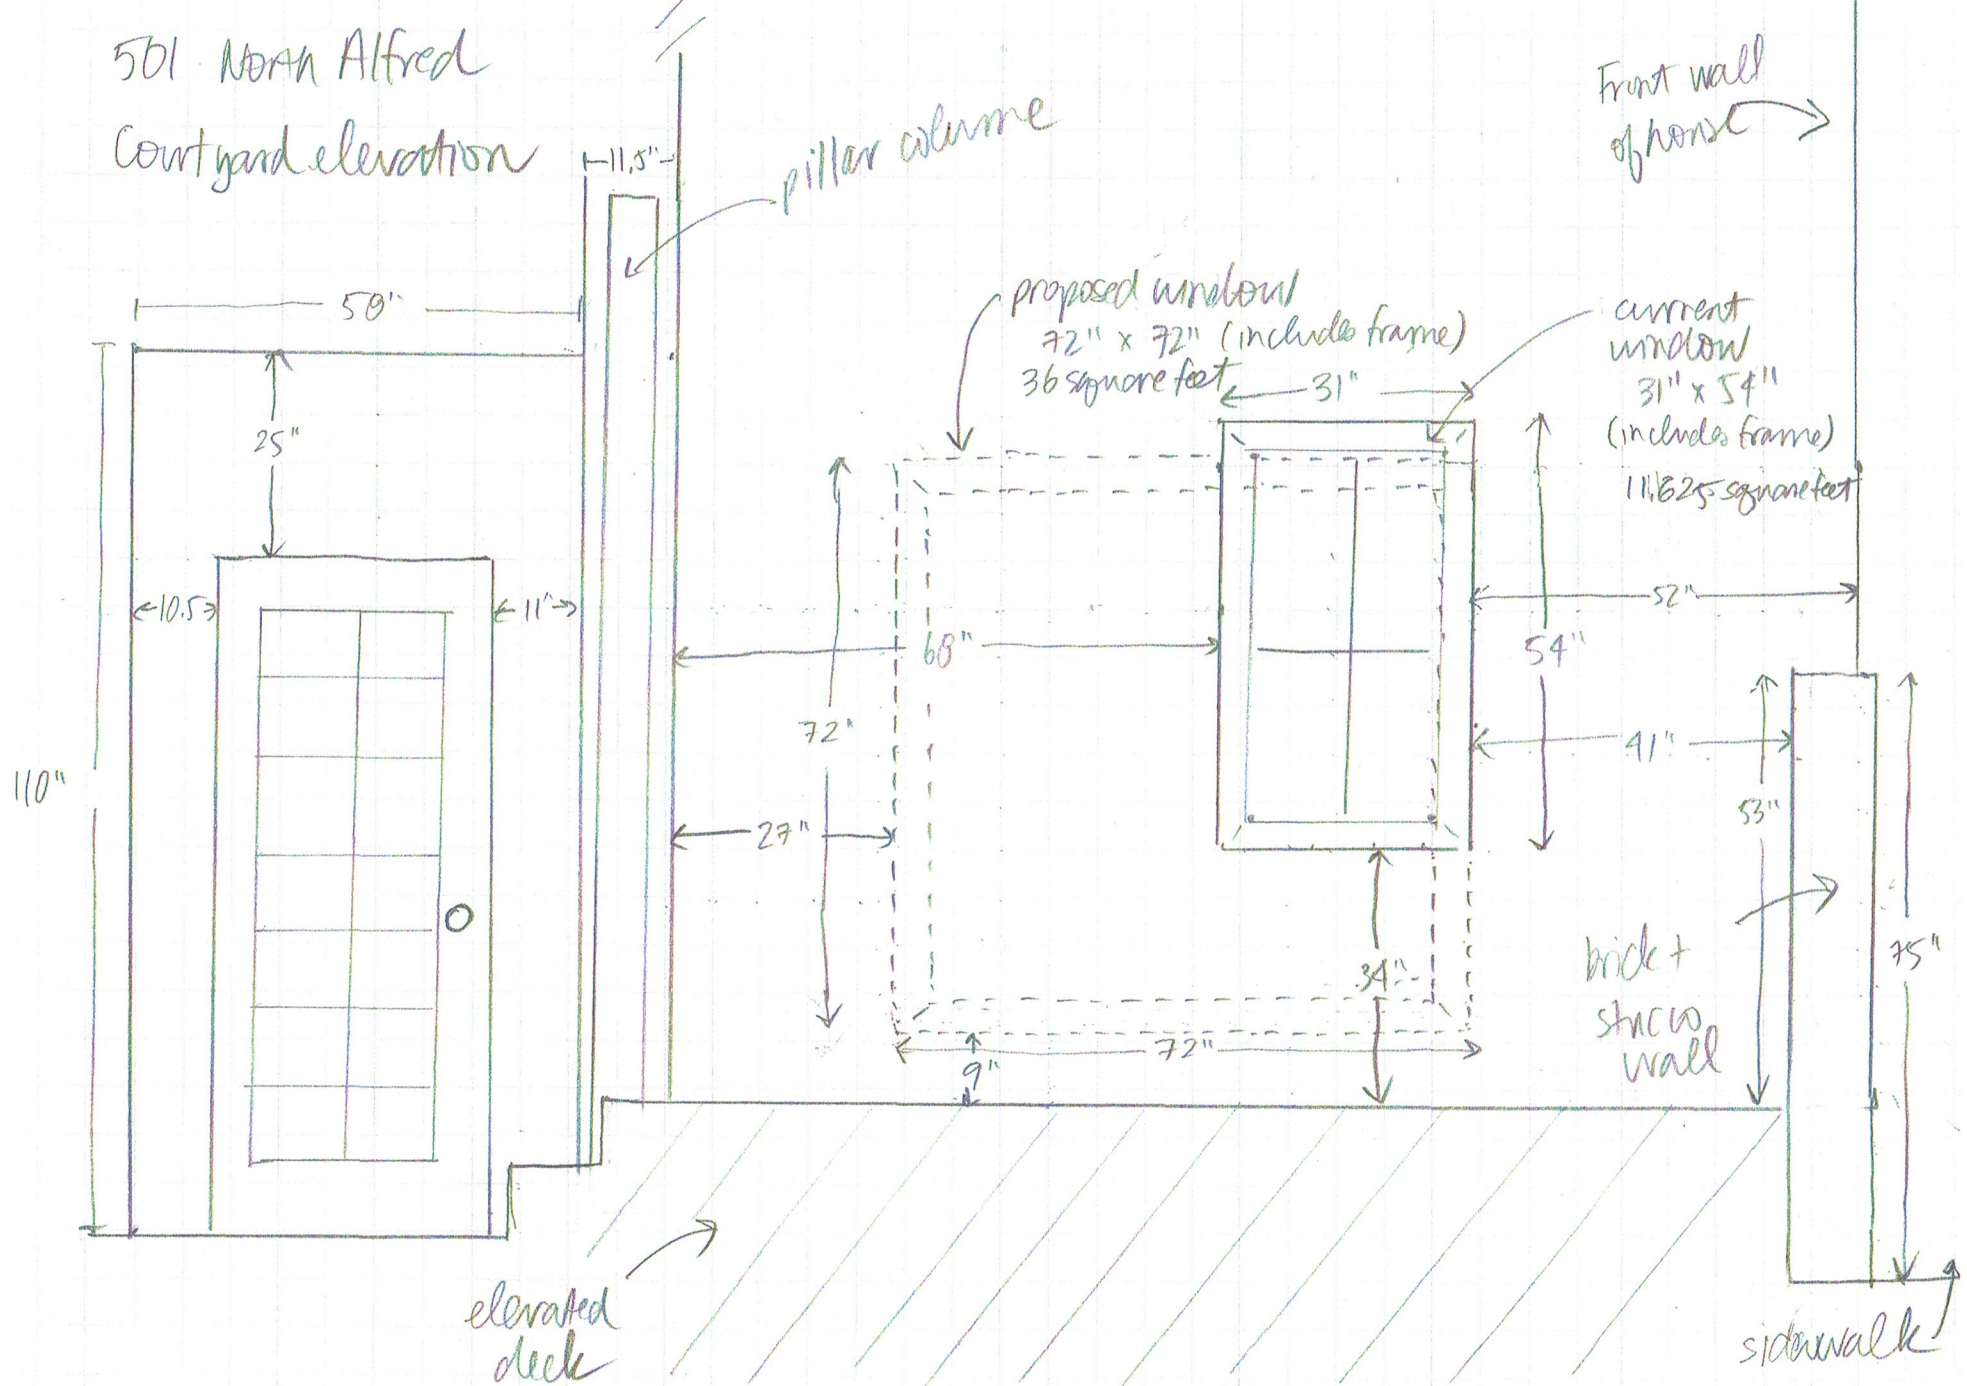 501 North Alfred
Courtyard elevation
11.5"
pillar column
Front wall
of house
58"
proposed window
72" x 72" (includes frame)
36 square feet
current
window
31" x 54"
(includes frame)
11.625 square feet
31"
25"
10.5
11"
52"
54"
68"
72"
41"
110"
27"
53"
34"
brick +
stucco
wall
75"
72"
9"
elevated
deck
sidewalk